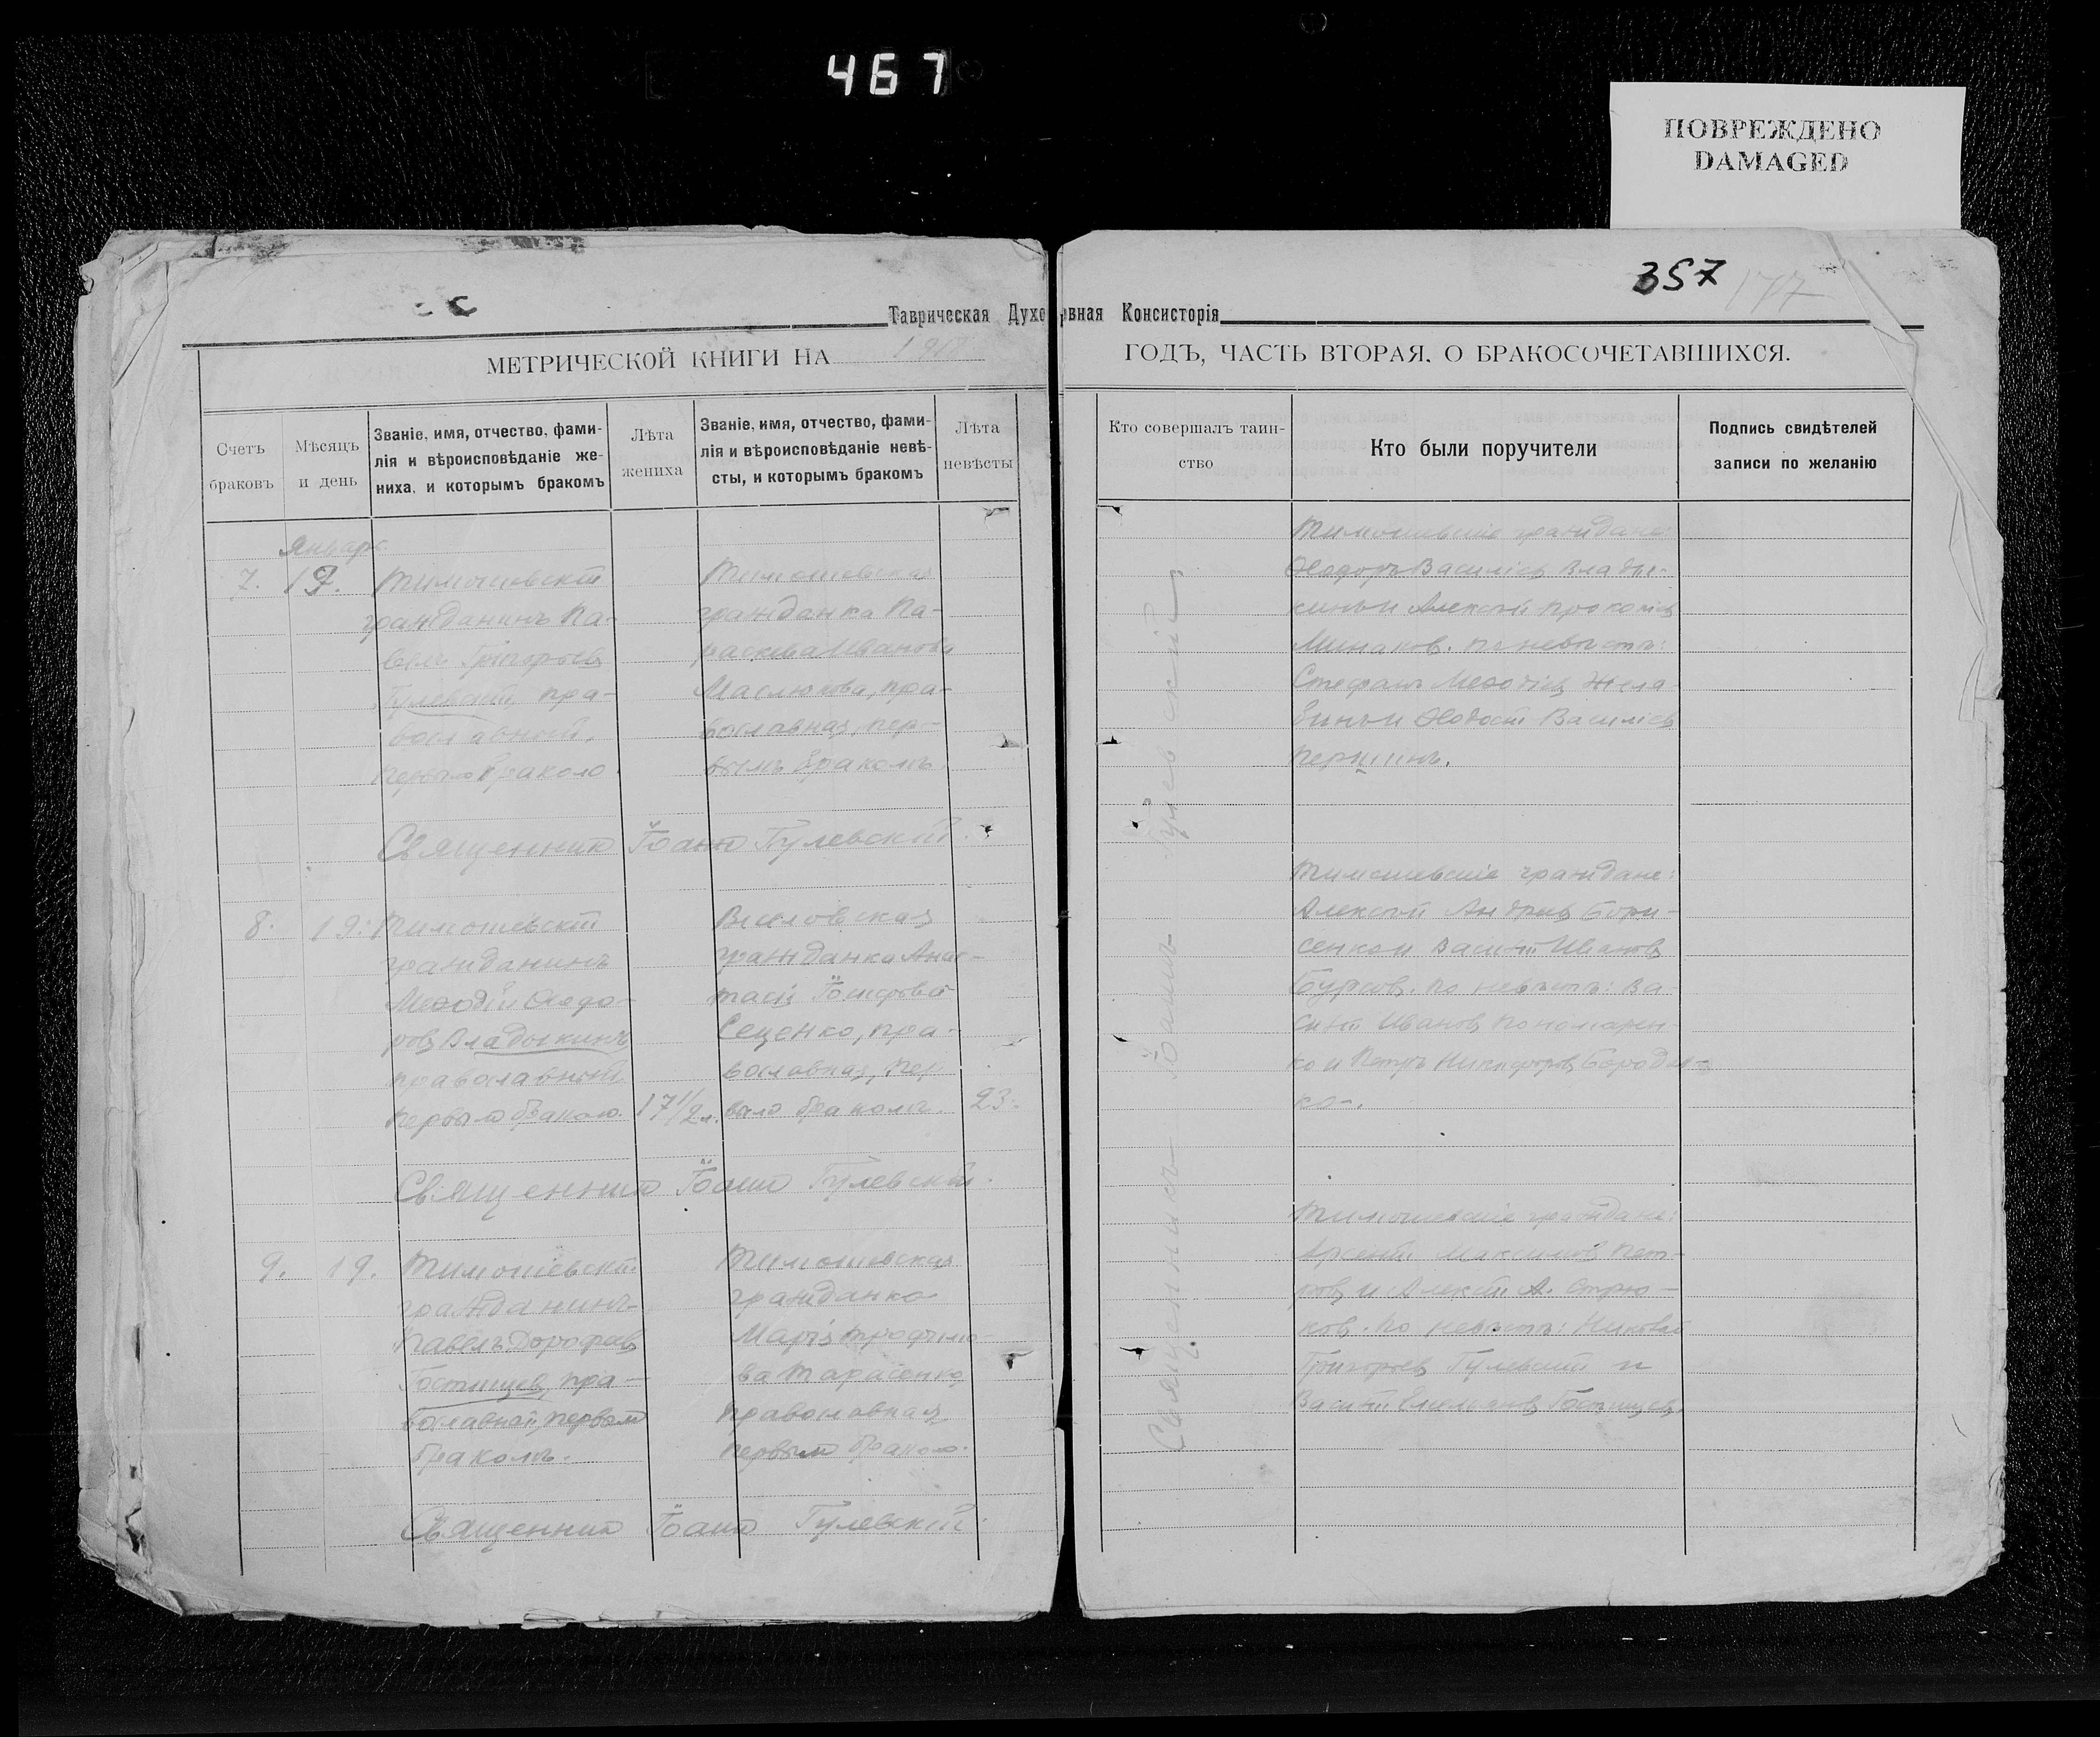 467
ПОВРЕЖДЕНО
DAMAGED
357
177
Таврическая Духовная Консисторія
МЕТРИЧЕСКОЙ КНИГИ НА
ГОДЪ, ЧАСТЬ ВТОРАЯ, О БРАКОСОЧЕТАВШИХСЯ.
Счетъ
браковъ
Мѣсяцъ
и день
Званіе, имя, отчество, фами-
лія и вѣроисповѣданіе же-
ниха, и которымъ бракомъ
Лѣта
жениха
Званіе, имя, отчество, фами-
лія и вѣроисповѣданіе невѣ-
сты, и которымъ бракомъ
Лѣта
невѣсты
Кто совершалъ таин-
ство
Кто были поручители
Подпись свидѣтелей
записи по желанію
Январь
7.
19.
Тимошевскій
гражданинъ Па-
велъ Григорьевъ
Гулевскій, пра-
вославный,
первымъ бракомъ.
Тимошевская
гражданка Па-
раскева Иванова
Маслюкова, пра-
вославная, пер-
вымъ бракомъ.
Тимошевскіе граждане:
Ѳеодоръ Василіевъ Влады-
кинъ и Алексѣй Прокопіев
Минаковъ. По невѣстѣ:
Стефанъ Меѳодіевъ
Василіевъ
Першинъ.
Священникъ Іоаннъ Гулевскій.
8.
19.
Тимошевскій
гражданинъ
Меѳодій Ѳеодо-
ровъ Владыкинъ
православный
первымъ бракомъ.
17 1/2 л.
гражданка Анас-
тасія
Сеценко, пра-
вославная, пер-
вымъ бракомъ.
23.
Тимошевскіе граждане:
Алексѣй Андреевъ Бори-
сенко и Василій Ивановъ
Бурсовъ. По невѣстѣ: Ва-
силій Ивановъ Пономарен-
ко и Петръ Никифоровъ Бородин-
ко.
Священникъ Іоаннъ Гулевскій.
9.
19.
Тимошевскій
гражданинъ
Павелъ Дорофеевъ
Гостищевъ, пра-
вославный, первымъ
бракомъ.
Тимошевская
гражданка
Марія Трофимо-
ва Тарасенко,
православная
первымъ бракомъ.
Тимошевскіе граждане:
Арсентій Максимовъ Пет-
ровъ и Алексѣй А. Стрю-
ковъ. По невѣстѣ: Николай
Григорьевъ Гулевскій и
Василій Емельяновъ Гостищевъ.
Священникъ Іоаннъ Гулевскій.
Священникъ Іоаннъ Гулевскій